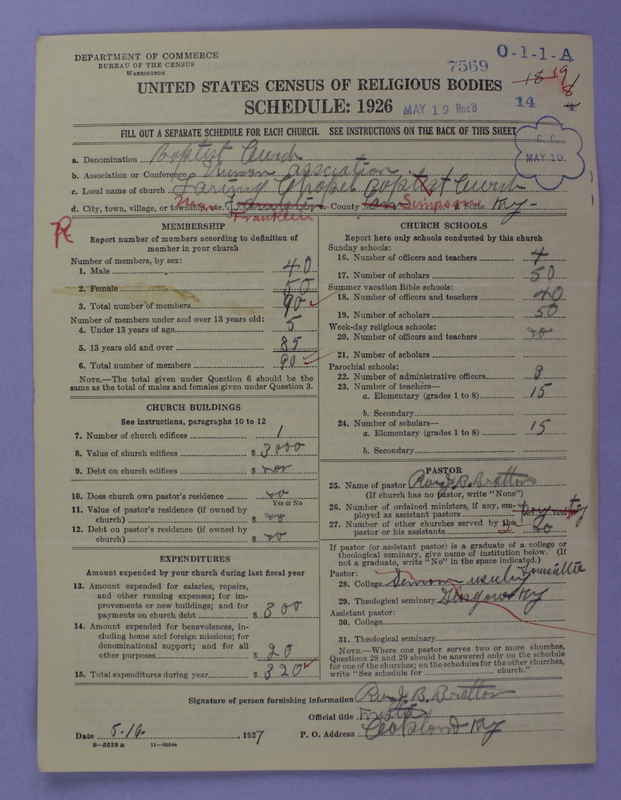 DEPARTMENT OF COMMERCE
BUREAU OF THE CENSUS
WASHINGTON
7569
0-1-1-A
UNITED STATES CENSUS OF RELIGIOUS BODIES
SCHEDULE: 1926
MAY 19 Rec'd
14
FILL OUT A SEPARATE SCHEDULE FOR EACH CHURCH. SEE INSTRUCTIONS ON THE BACK OF THIS SHEET
C. C.
MAY 19
a. Denomination Baptist Church
b. Association or Conference Union association
c. Local name of church Chapel Baptist Church
d. City, town, village, or township Near Franklin e. County Simpson State Ky-
MEMBERSHIP
Report number of members according to definition of member in your church
Number of members, by sex:
1. Male 40
2. Female 50
3. Total number of members 90
Number of members under and over 13 years old:
4. Under 13 years of age 5
5. 13 years old and over 85
6. Total number of members 90
NOTE.—The total given under Question 6 should be the same as the total of males and females given under Question 3.
CHURCH BUILDINGS
See instructions, paragraphs 10 to 12
7. Number of church edifices 1
8. Value of church edifices $ 3000
9. Debt on church edifices $
10. Does church own pastor's residence no
Yes or No
11. Value of pastor's residence (if owned by church) $ no
12. Debt on pastor's residence (if owned by church) $ no
EXPENDITURES
Amount expended by your church during last fiscal year
13. Amount expended for salaries, repairs, and other running expenses; for improvements or new buildings; and for payments on church debt $ 300
14. Amount expended for benevolences, including home and foreign missions; for denominational support; and for all other purposes $ 20
15. Total expenditures during year $ 320
CHURCH SCHOOLS
Report here only schools conducted by this church
Sunday schools:
16. Number of officers and teachers 4
17. Number of scholars 50
Summer vacation Bible schools:
18. Number of officers and teachers 40
19. Number of scholars 50
Week-day religious schools:
20. Number of officers and teachers no
21. Number of scholars
Parochial schools:
22. Number of administrative officers 8
23. Number of teachers—
a. Elementary (grades 1 to 8) 15
b. Secondary
24. Number of scholars—
a. Elementary (grades 1 to 8) 15
b. Secondary
PASTOR
25. Name of pastor Rev. J. B. Bratton
(If church has no pastor, write "None")
26. Number of ordained ministers, if any, employed as assistant pastors
27. Number of other churches served by the pastor or his assistants
If pastor (or assistant pastor) is a graduate of a college or theological seminary, give name of institution below. (If not a graduate, write "No" in the space indicated.)
Pastor:
28. College Louisville
29. Theological seminary Glasgow Ky
Assistant pastor:
30. College
31. Theological seminary
NOTE.—Where one pastor serves two or more churches, Questions 28 and 29 should be answered only on the schedule for one of the churches; on the schedules for the other churches, write "See schedule for church."
Signature of person furnishing information Rev. J. B. Bratton
Official title
Date 5-16- , 1927 P. O. Address Oakland Ky
8—5518 a 11—9054a